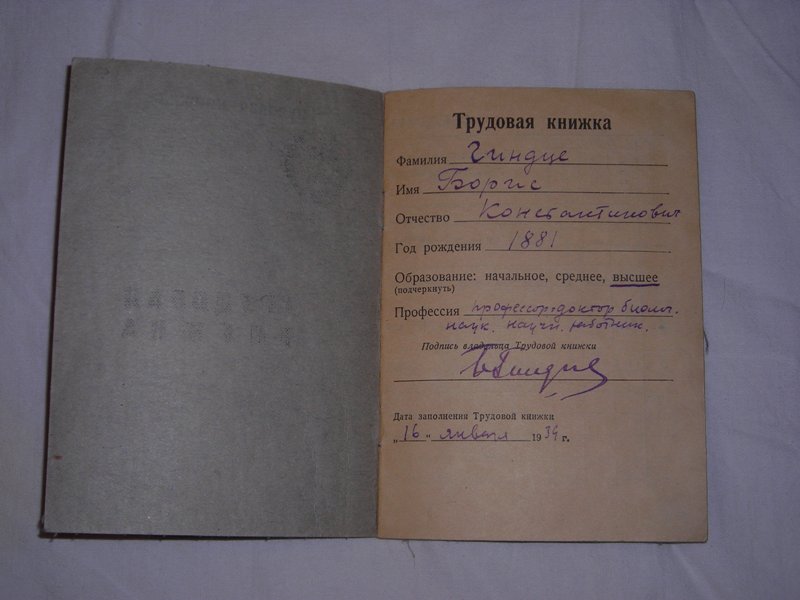 Трудовая книжка
Фамилия Гиндце
Имя Борис
Отчество Константинович
Год рождения 1881
Образование: начальное, среднее, высшее
(подчеркнуть)
Профессия профессор-доктор биолог.
наук. научн. работник.
Подпись владельца Трудовой книжки
Дата заполнения Трудовой книжки
„16“ января 1939 г.